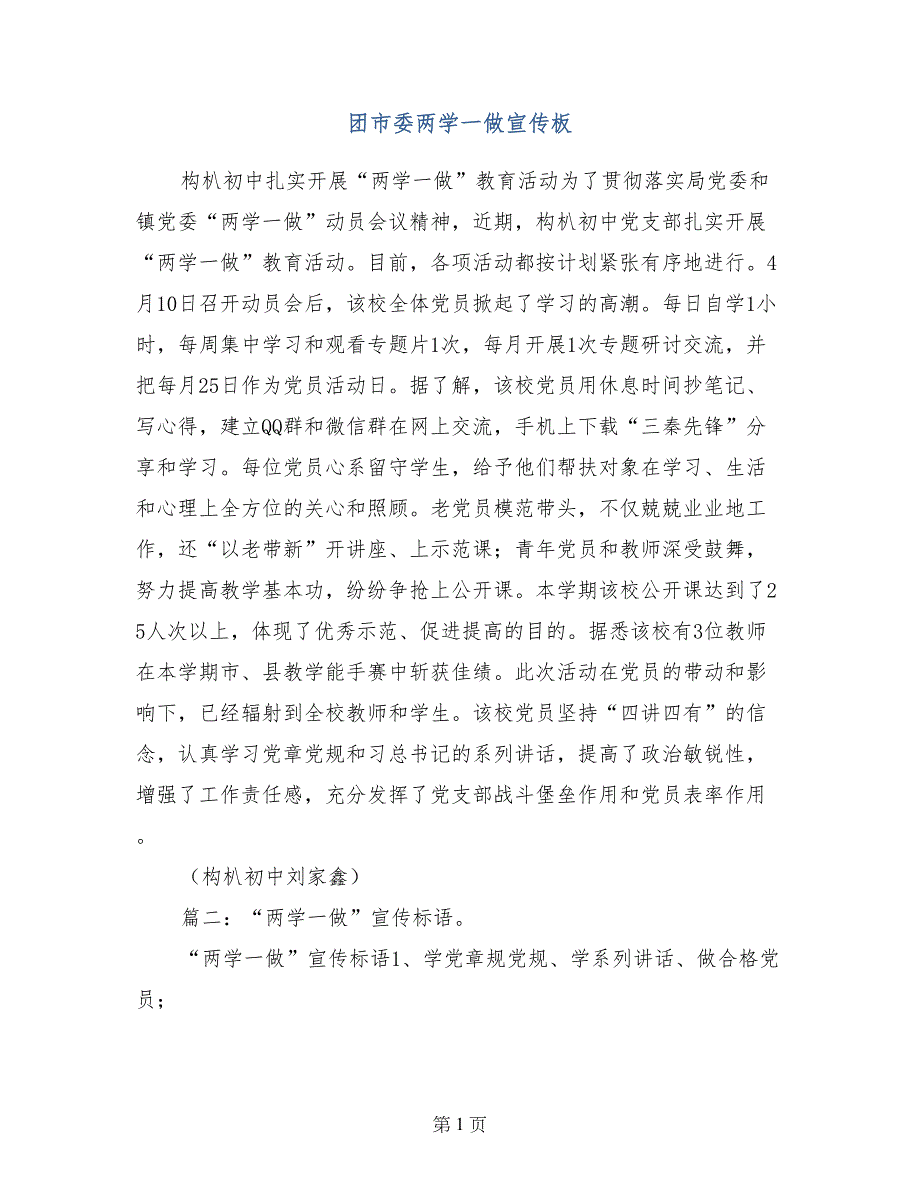 团市委两学一做宣传板
构朳初中扎实开展“两学一做”教育活动为了贯彻落实局党委和
镇党委“两学一做”动员会议精神，近期，构朳初中党支部扎实开展
“两学一做”教育活动。目前，各项活动都按计划紧张有序地进行。4
月10日召开动员会后，该校全体党员掀起了学习的高潮。每日自学1小
时，每周集中学习和观看专题片1次，每月开展1次专题研讨交流，并
把每月25日作为党员活动日。据了解，该校党员用休息时间抄笔记、
写心得，建立QQ群和微信群在网上交流，手机上下载“三秦先锋”分
享和学习。每位党员心系留守学生，给予他们帮扶对象在学习、生活
和心理上全方位的关心和照顾。老党员模范带头，不仅兢兢业业地工
作，还“以老带新”开讲座、上示范课；青年党员和教师深受鼓舞，
努力提高教学基本功，纷纷争抢上公开课。本学期该校公开课达到了2
5人次以上，体现了优秀示范、促进提高的目的。据悉该校有3位教师
在本学期市、县教学能手赛中斩获佳绩。此次活动在党员的带动和影
响下，已经辐射到全校教师和学生。该校党员坚持“四讲四有”的信
念，认真学习党章党规和习总书记的系列讲话，提高了政治敏锐性，
增强了工作责任感，充分发挥了党支部战斗堡垒作用和党员表率作用
。
（构朳初中刘家鑫）
篇二：“两学一做”宣传标语。
“两学一做”宣传标语1、学党章规党规、学系列讲话、做合格党
员；
第 1 页